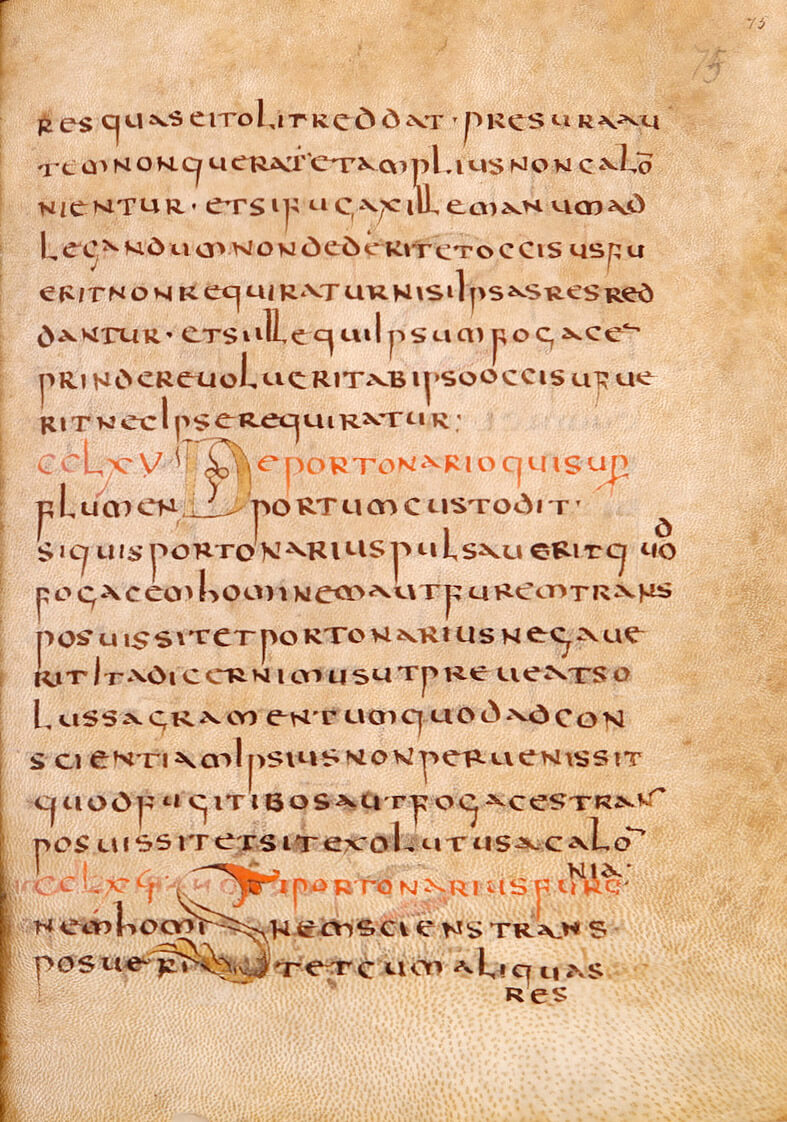 75
75
res quas ei tolit reddat · presura au
tem non querat et amplius non calō
nientur · et si fugax ille manum ad
legandum non dederit et occisus fu
erit non requiratur nisi ipsas res red
dantur · et si ille qui ipsum fogace
prindere uoluerit ab ipso occisu fue
rit nec ipse requiratur :
CCLXV De portonario qui sup
flumen portum custodit ·
si quis portonarius pulsauerit quod
fogacem hominem aut furem trans
posuissit et portonarius negaue
rit ita dicernimus ut preueat so
lus sacramentum quod ad con
scientiam ipsius non peruenissit
quod fugitibos aut fogaces trans
posuissit et sit exolutus a calo
nia ·
Si portonarius fure
nem homi rem sciens trans
posuerit et cum aliquas
res